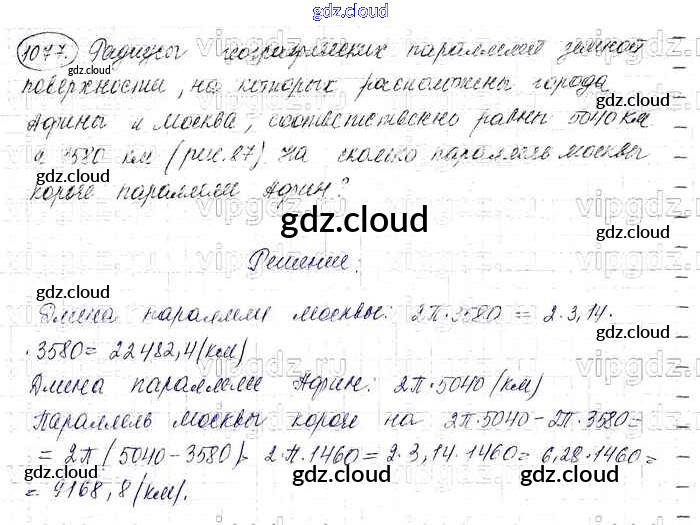 gdz.cloud
1077. Радиусы географических параллелей земной
gdz.cloud
поверхности, на которых расположены города
gdz.cloud
Афины и Москва, соответственно равны 5040 км
и 3580 км (рис. 87). На сколько параллель Москвы
короче параллели Афин?
gdz.cloud
Решение:
gdz.cloud
Длина параллели Москвы: 2π·3580 = 2·3,14·
·3580 = 22482,4 (км)
gdz.cloud
Длина параллели Афин: 2π·5040 (км)
Параллель Москвы короче на 2π·5040-2π·3580=
= 2π(5040-3580)= 2·π·1460=2·3,14·1460=6,28·1460=
gdz.cloud gdz.cloud
= 9168,8 (км).
gdz.cloud